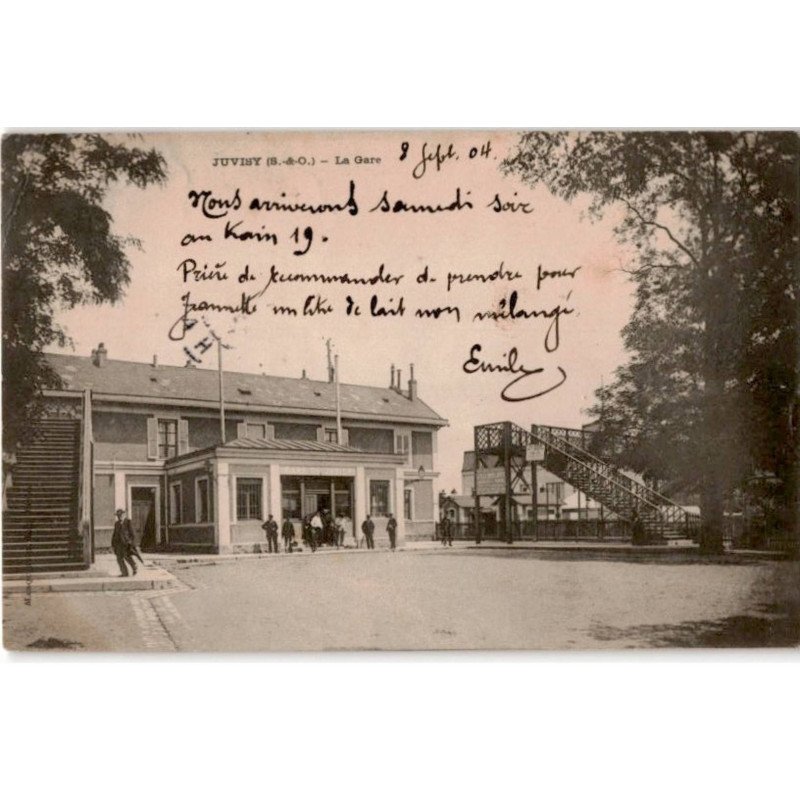 JUVISY (S.-&-O.) – La Gare
8 Sept. 04.
Nous arriverons samedi soir
au train 19.
Prière de recommander de prendre pour
Jeannette un litre de lait non mélangé.
Emile